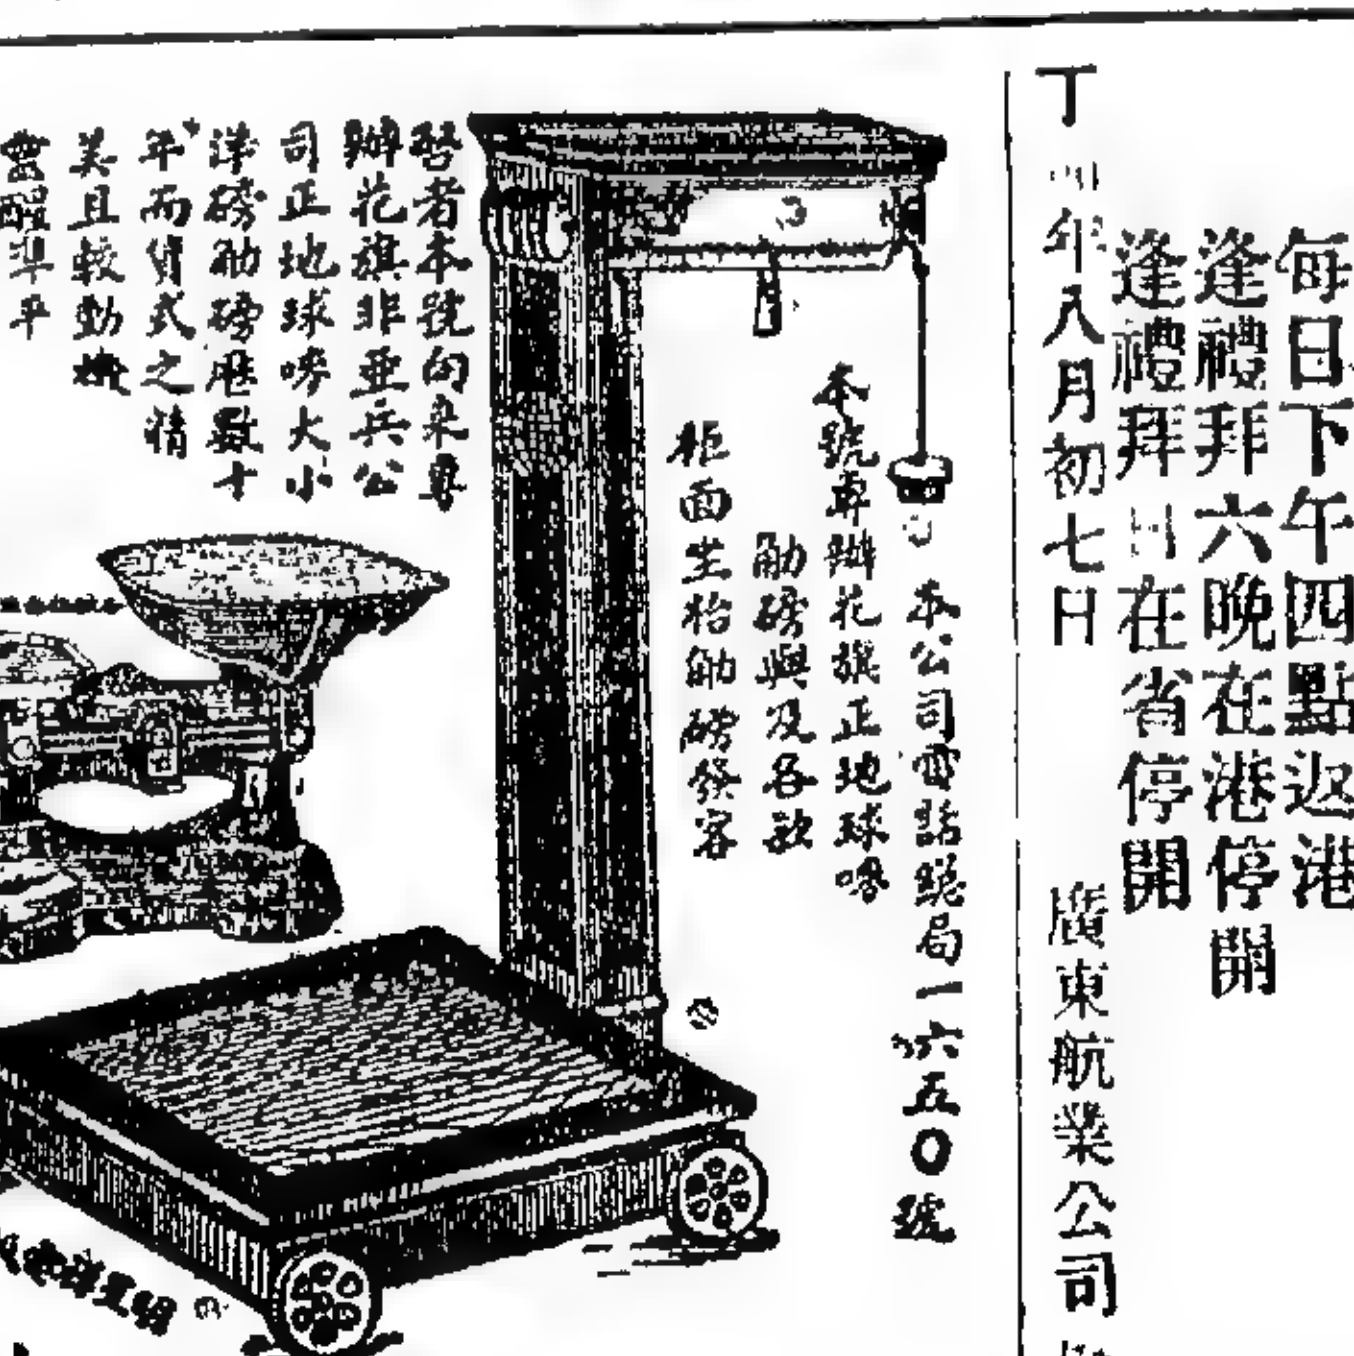 每日下午四點返港
逢禮拜六晚在港停開
逢禮拜日在省停開
丁 年八月初七日 廣東航業公司
本公司電話總局一六五〇號
本號專辦花旗正地球嘜
觔磅與及各款
柜面生枱觔磅發客
啓者本號向來專
辦花旗非亜兵公
司正地球嘜大小
津磅觔磅應數十
年而貨式之精
美且較動機
靈醒準平